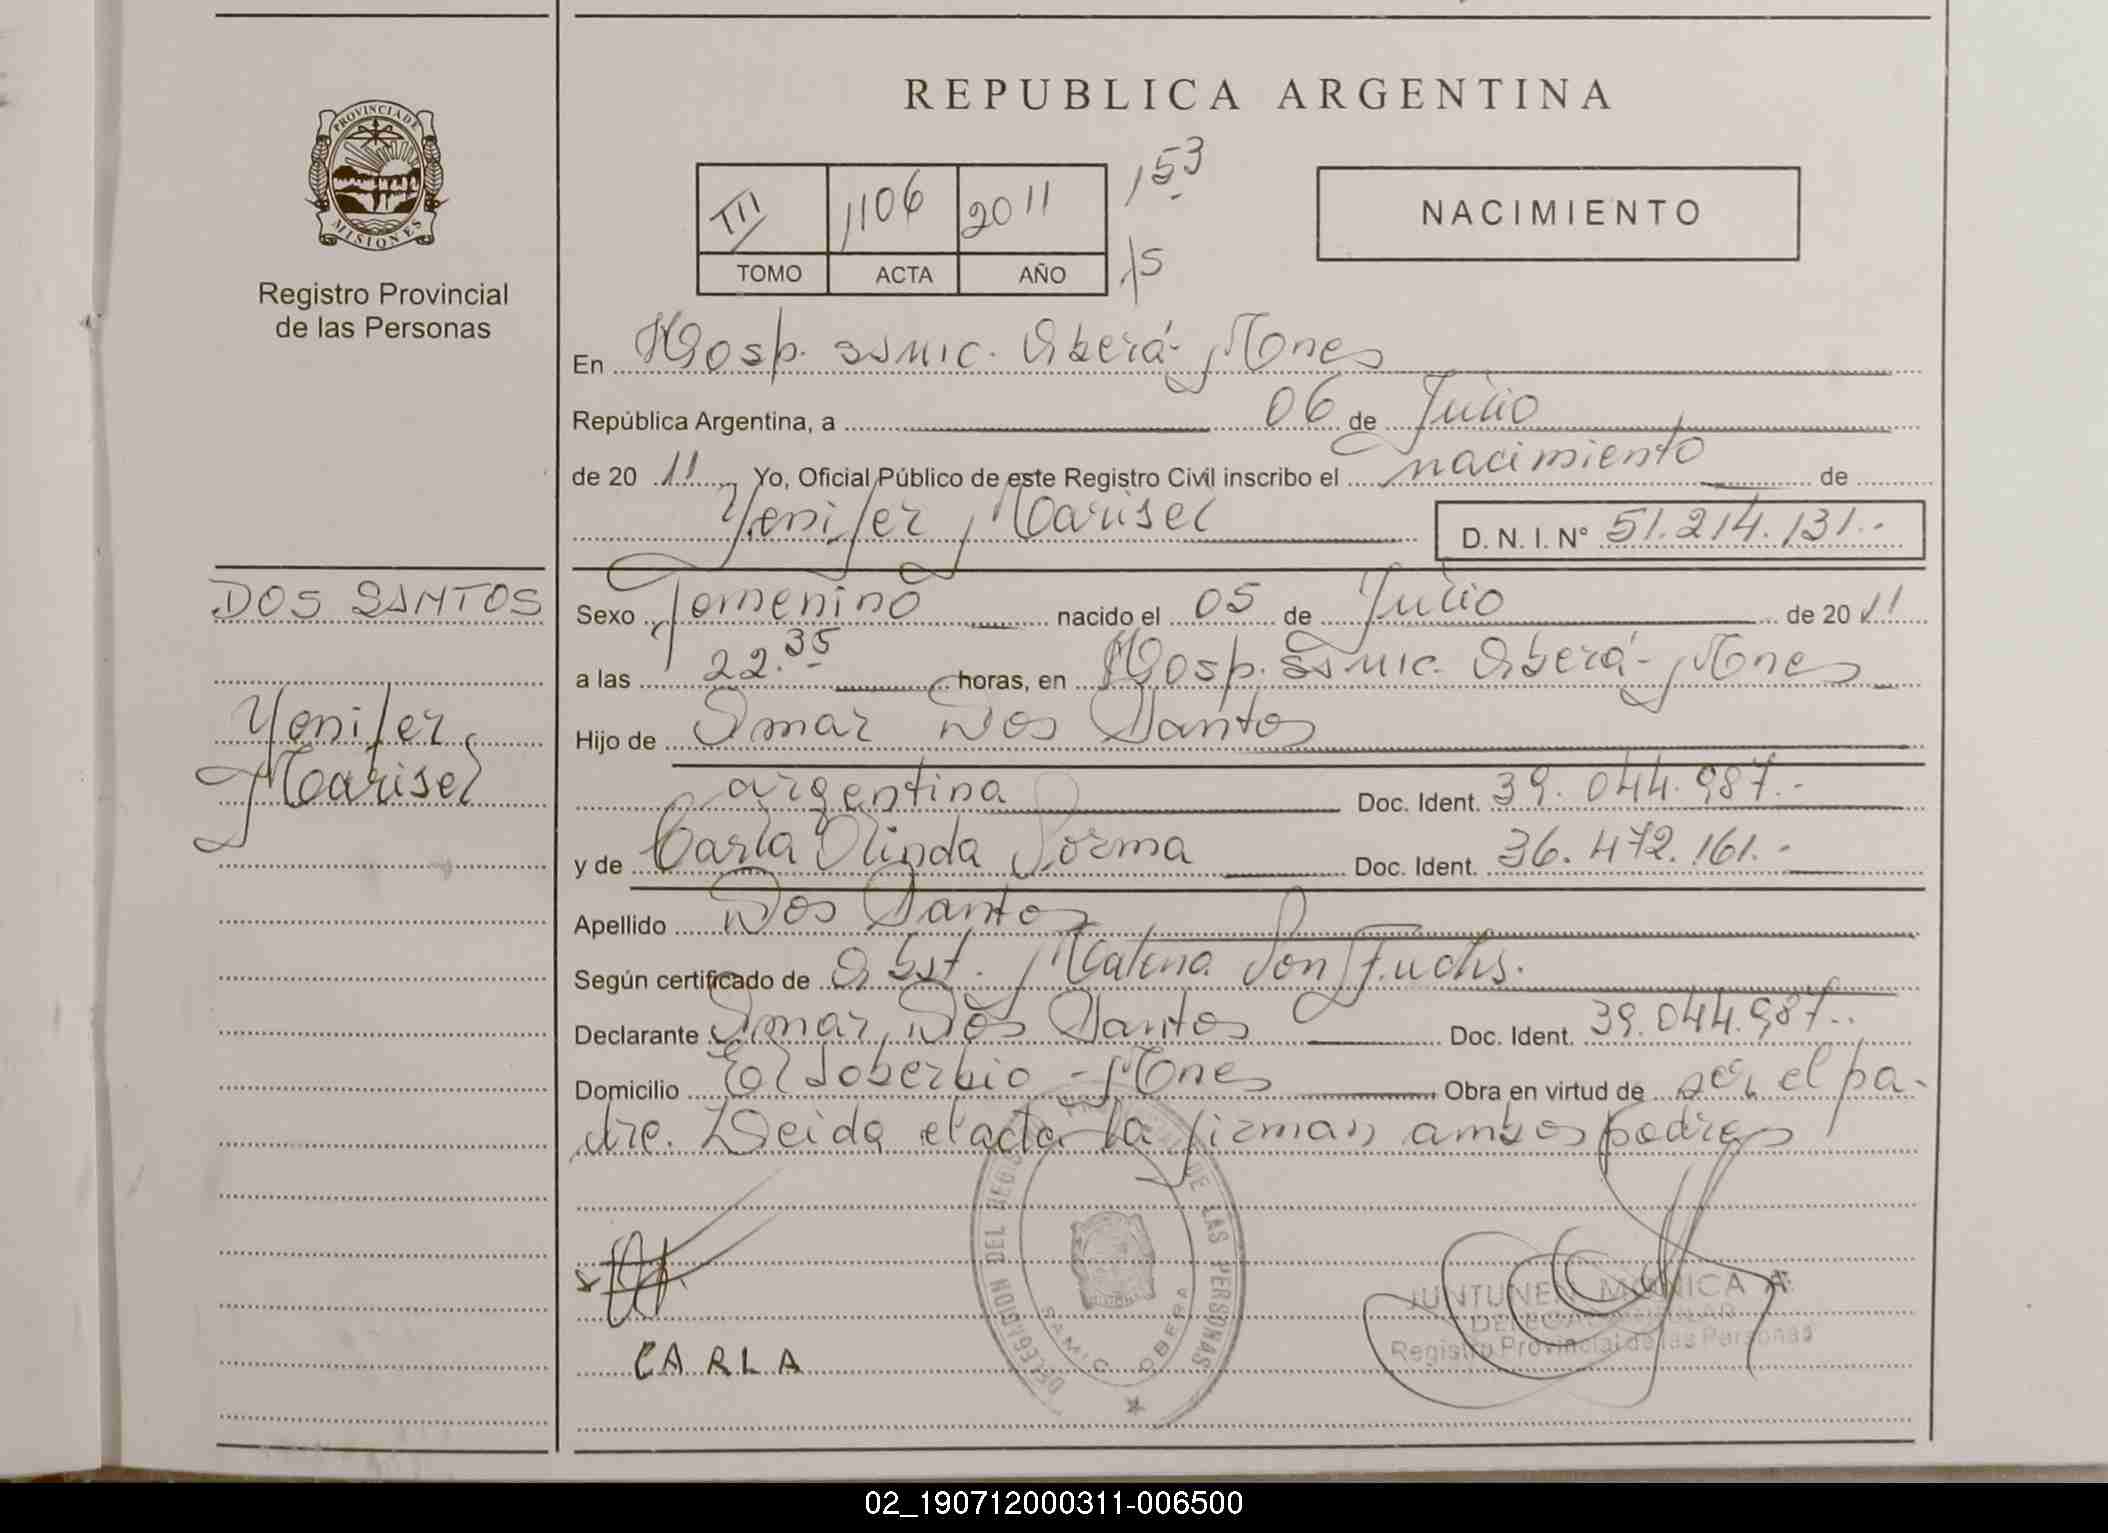 REPUBLICA ARGENTINA
PROVINCIA DE
MISIONES
Registro Provincial
de las Personas
III 1106 2011
TOMO ACTA AÑO
153
15
NACIMIENTO
En Hosp. SSMIC. Oberá - Mnes
República Argentina, a 06 de Julio
de 2011 Yo, Oficial Público de este Registro Civil inscribo el nacimiento de
Yenifer Marisel D. N. I. Nº 51.214.131.-
DOS SANTOS
Yenifer
Marisel
Sexo femenino nacido el 05 de Julio de 2011
a las 22.35 horas, en Hosp. SSMIC. Oberá - Mnes
Hijo de Omar Dos Santos
argentina Doc. Ident. 39.044.987.-
y de Carla Olinda Doc. Ident. 36.472.161.-
Apellido Dos Santos
Según certificado de Obst. Malena Fuchs.
Declarante Omar Dos Santos Doc. Ident. 39.044.987.-
Domicilio El Soberbio - Mnes Obra en virtud de ser el pa-
dre. Leida el acta la firman ambos padres
CARLA
DELEGACION DEL REGISTRO PROVINCIAL DE LAS PERSONAS
SAMIC OBERA
JUNTUNEN MONICA A.
DELEGADA TITULAR
Registro Provincial de las Personas
02_190712000311-006500